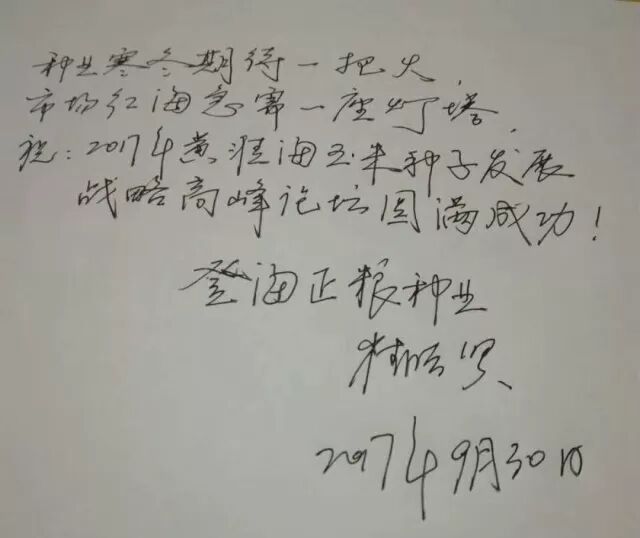 种业寒冬期待一把火
市场红海急需一座灯塔,
祝:2017年黄淮海玉米种子发展
战略高峰论坛圆满成功!
登海正粮种业
2017年9月30日